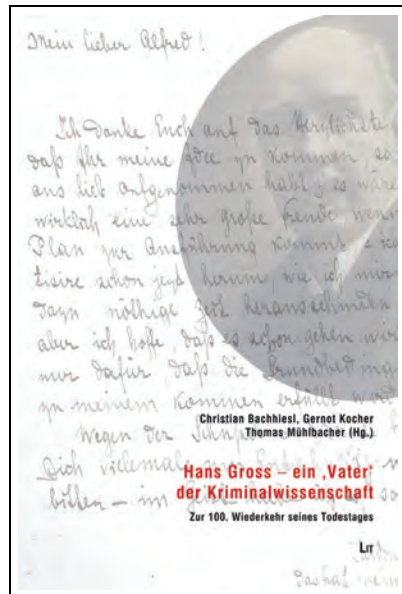 Mein lieber Alfred!
Ich danke Euch auf das Herzlichste
daß Ihr meine Idee zu kommen, so
aus lieb aufgenommen habt; es wäre
wirklich eine sehr große Freude wenn
Plan zur Ausführung kommt
schon jetzt herum, wie ich mir
nöthige Zeit herausschneiden
aber ich hoffe, daß es schon gehen wird
nur dafür, daß die Grundbeding
zu meinem Kommen erfüllt wird
Christian Bachhiesl, Gernot Kocher
Thomas Mühlbacher (Hg.)
Wegen der
Hans Gross – ein ‚Vater‘
der Kriminalwissenschaft
Dich vielemale
bitten – im
Zur 100. Wiederkehr seines Todestages
LIT